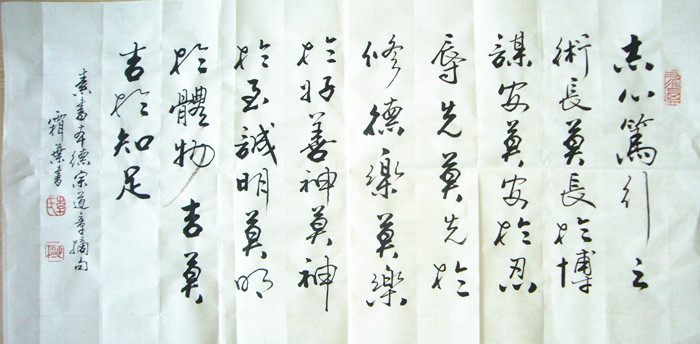 志心篤行之
術長莫長於博
謀安莫安於忍
辱先莫先於
修德樂莫樂
於好善神莫神
於至誠明莫明
於體物吉莫
吉於知足
素書本德宗道章摘句
霜葉書